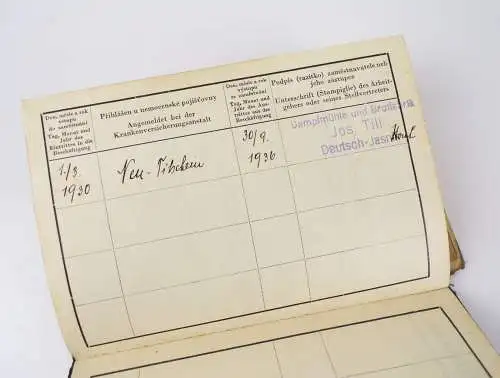 Den, měsíc a rok
vstupu
do zaměstnání
Tag, Monat und
Jahr des
Eintrittes in die
Beschäftigung
Přihlášen u nemocenské pojišťovny
Angemeldet bei der
Krankenversicherungsanstalt
Den, měsíc a rok
výstupu
ze zaměstnání
Tag, Monat und
Jahr des Aus-
trittes aus der
Beschäftigung
Podpis (razítko) zaměstnavatele neb
jeho zástupce
Unterschrift (Stampiglie) des Arbeit-
gebers oder seines Stellvertreters
1./3.
1930
Neu-Titschein
30/9.
1936
Dampfmühle und
JOS. Till
Deutsch-Jassnik